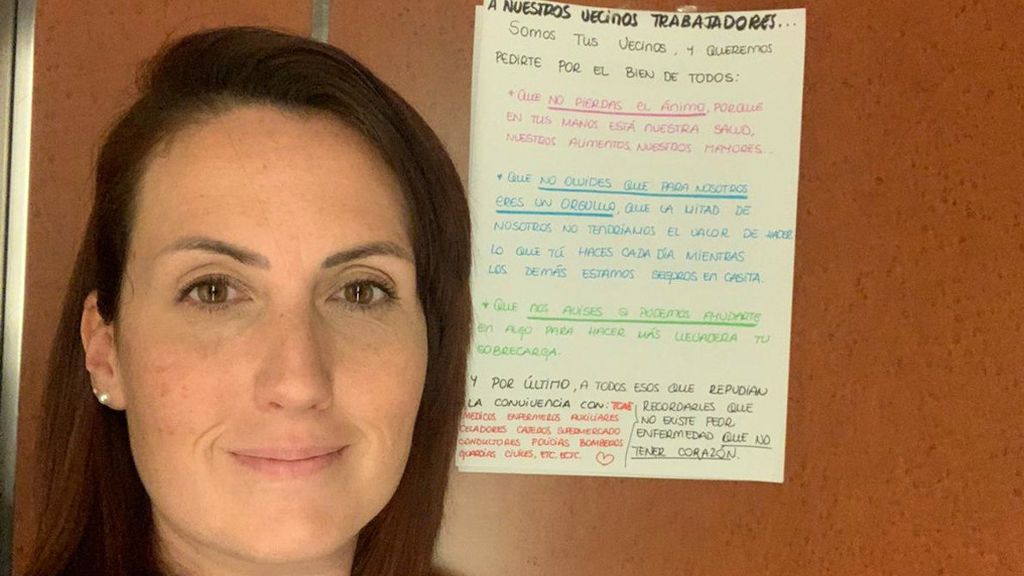 A NUESTROS VECINOS TRABAJADORES...
SOMOS TUS VECINOS, Y QUEREMOS
PEDIRTE POR EL BIEN DE TODOS:
* QUE NO PIERDAS EL ÁNIMO, PORQUE
EN TUS MANOS ESTÁ NUESTRA SALUD,
NUESTROS ALIMENTOS, NUESTROS MAYORES...
* QUE NO OLVIDES QUE PARA NOSOTROS
ERES UN ORGULLO, QUE LA MITAD DE
NOSOTROS NO TENDRÍAMOS EL VALOR DE HACER
LO QUE TÚ HACES CADA DÍA MIENTRAS
LOS DEMÁS ESTAMOS SEGUROS EN CASITA.
* QUE NOS AVISES SI PODEMOS AYUDARTE
EN ALGO PARA HACER MÁS LLEVADERA TU
SOBRECARGA.
Y POR ÚLTIMO, A TODOS ESOS QUE REPUDIAN
LA CONVIVENCIA CON: TCAE
MEDICOS ENFERMEROS AUXILIARES
CELADORES CAJEROS SUPERMERCADO
CONDUCTORES POLICIAS BOMBEROS
GUARDIAS CIVILES, ETC, ECTC.
RECORDARLES QUE
NO EXISTE PEOR
ENFERMEDAD QUE NO
TENER CORAZÓN.